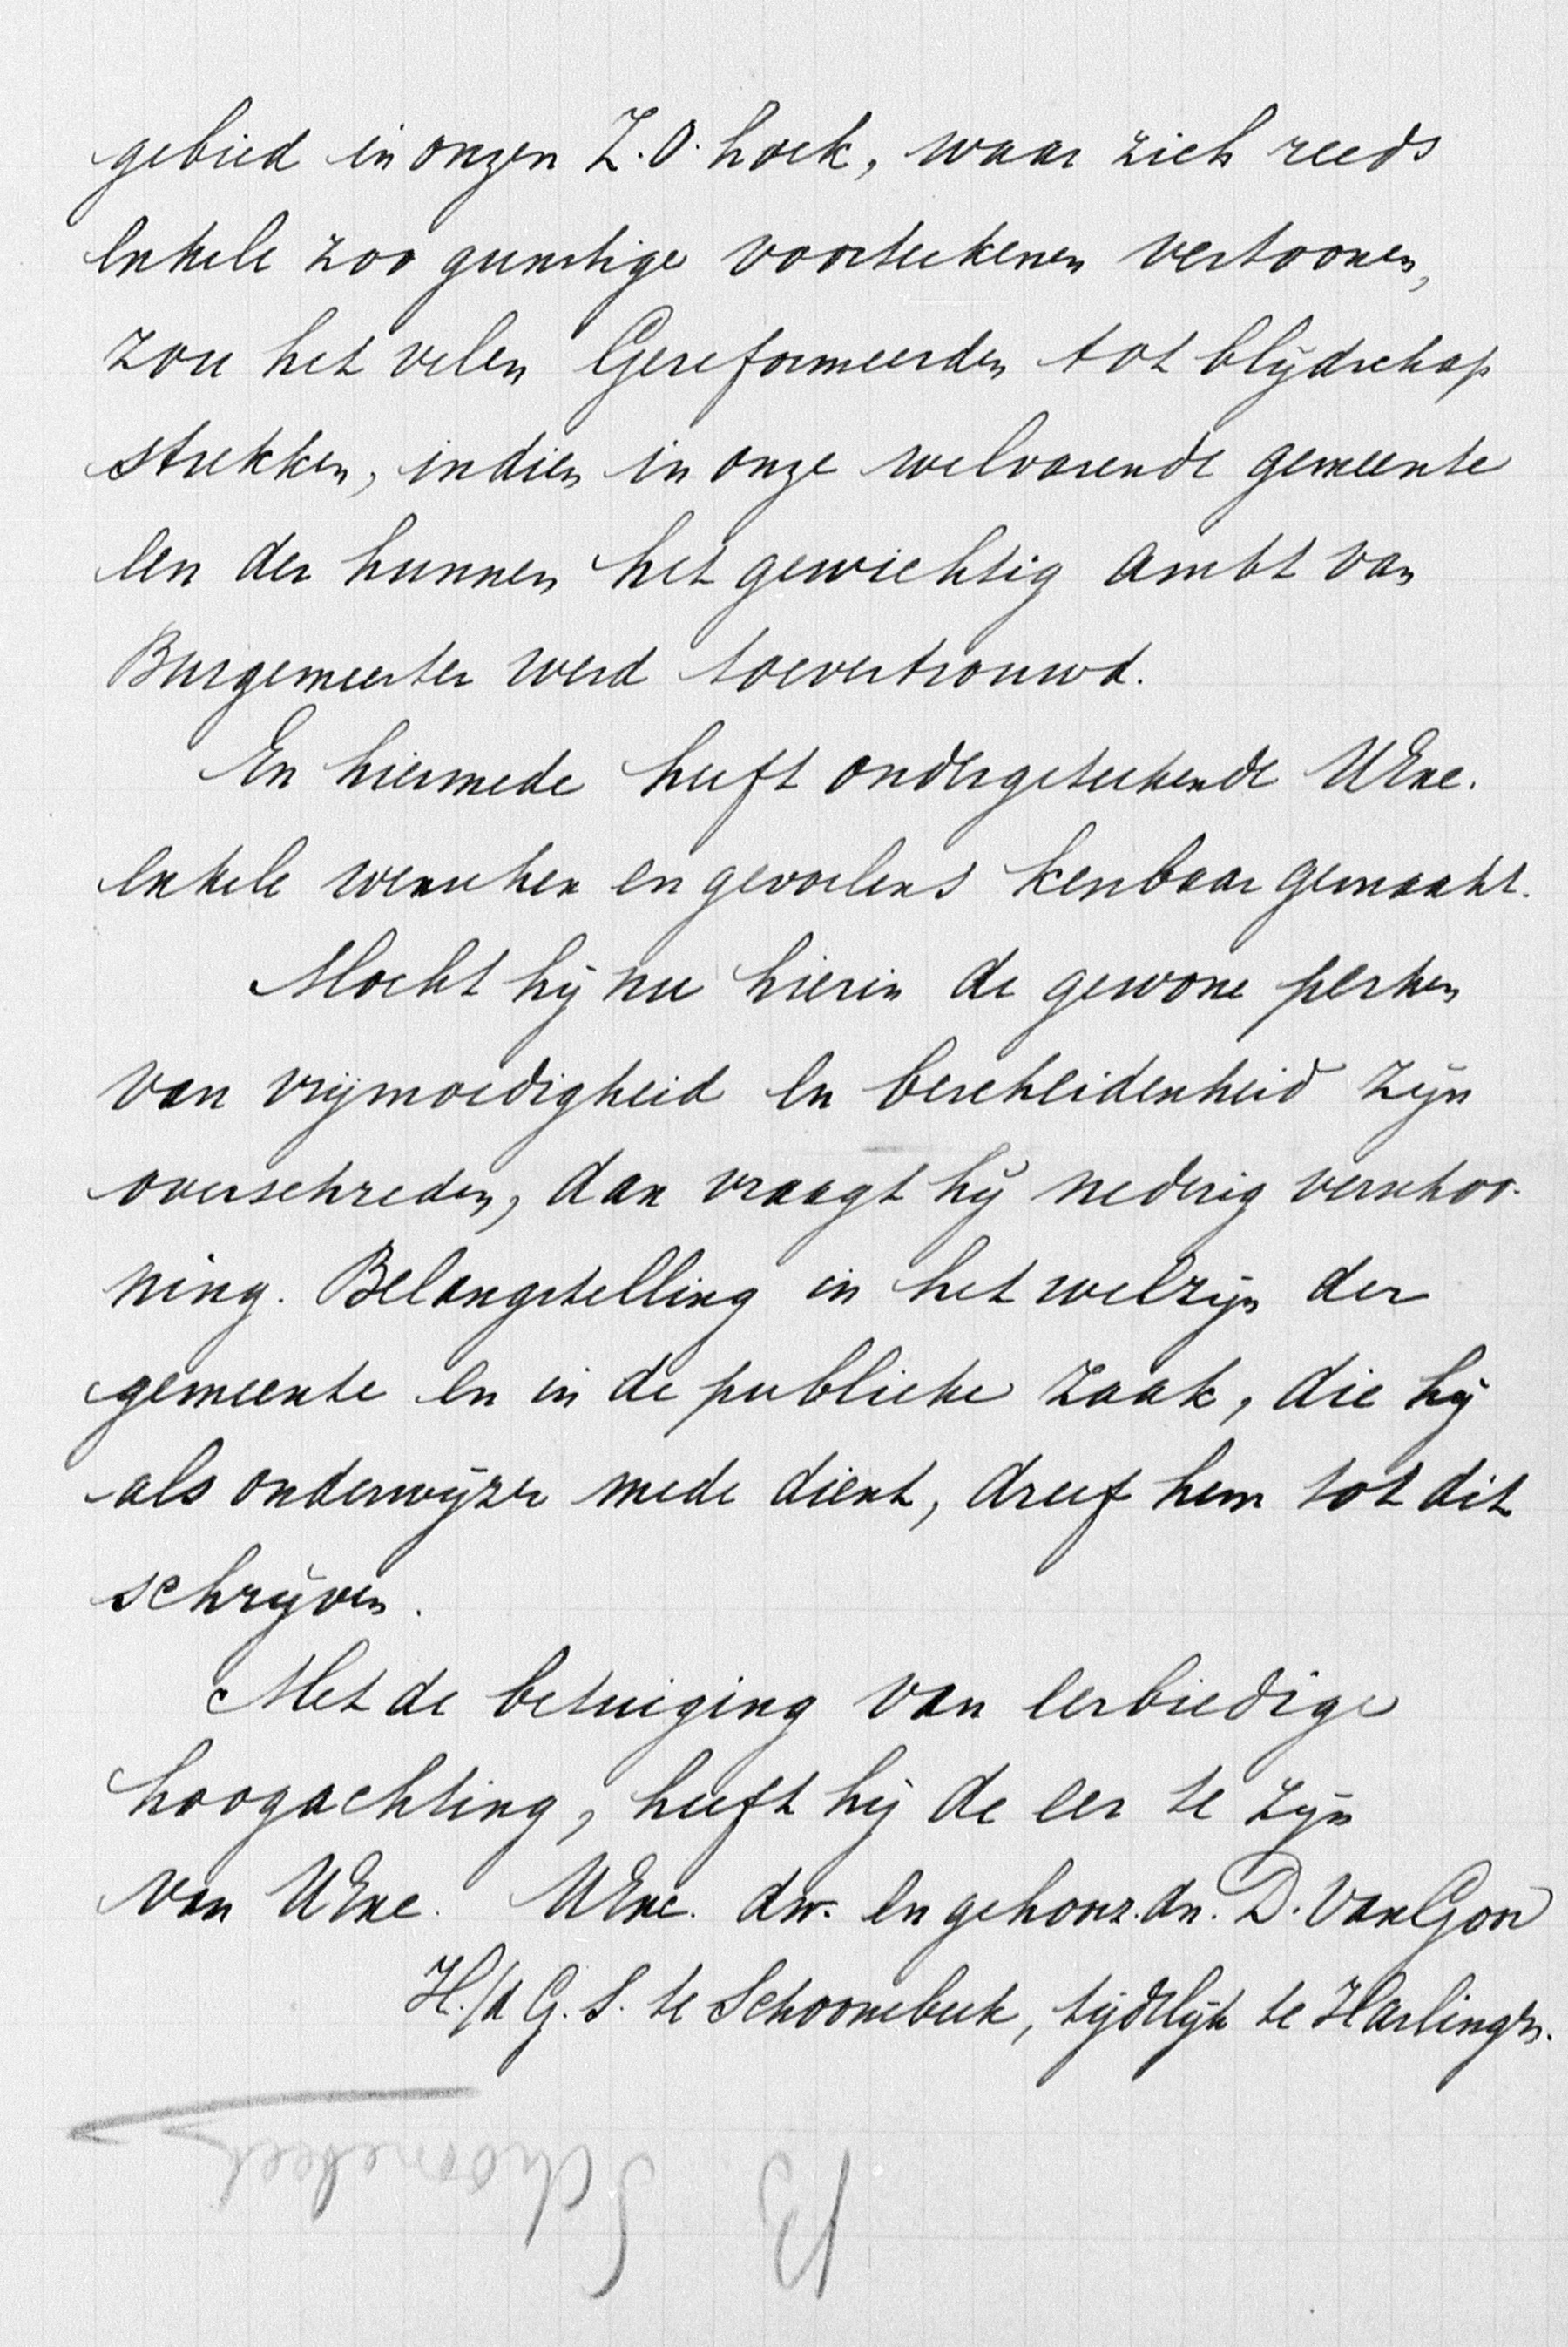 gebied in onzen Z.O. hoek, waar zich reeds
enkele zoo gunstige voorteekenen vertoonen,
zou het velen Gereformeerden tot blijdschap
strekken, indien in onze welvarende gemeente
een der hunnen het gewichtig ambt van
Burgemeester werd toevertrouwd.
En hiermede heeft ondergeteekende UExc.
enkele wenschen en gevoelens kenbaar gemaakt.
Mocht hij nu hierin de gewone perken
van vrijmoedigheid en bescheidenheid zijn
overschreden, dan vraagt hij nederig verschoo-
ning. Belangstelling in het welzijn der
gemeente en in de publieke zaak, die hij
als onderwijzer mede dient, dreef hem tot dit
schrijven.
Met de betuiging van eerbiedige
hoogachting, heeft hij de eer te zijn
van UExc. UExc. dw. en gehoorz. dn. D. van Goor
H./d G. S. te Schoonebeek, tijdelijk te Harlingen.
B Schoonebeek